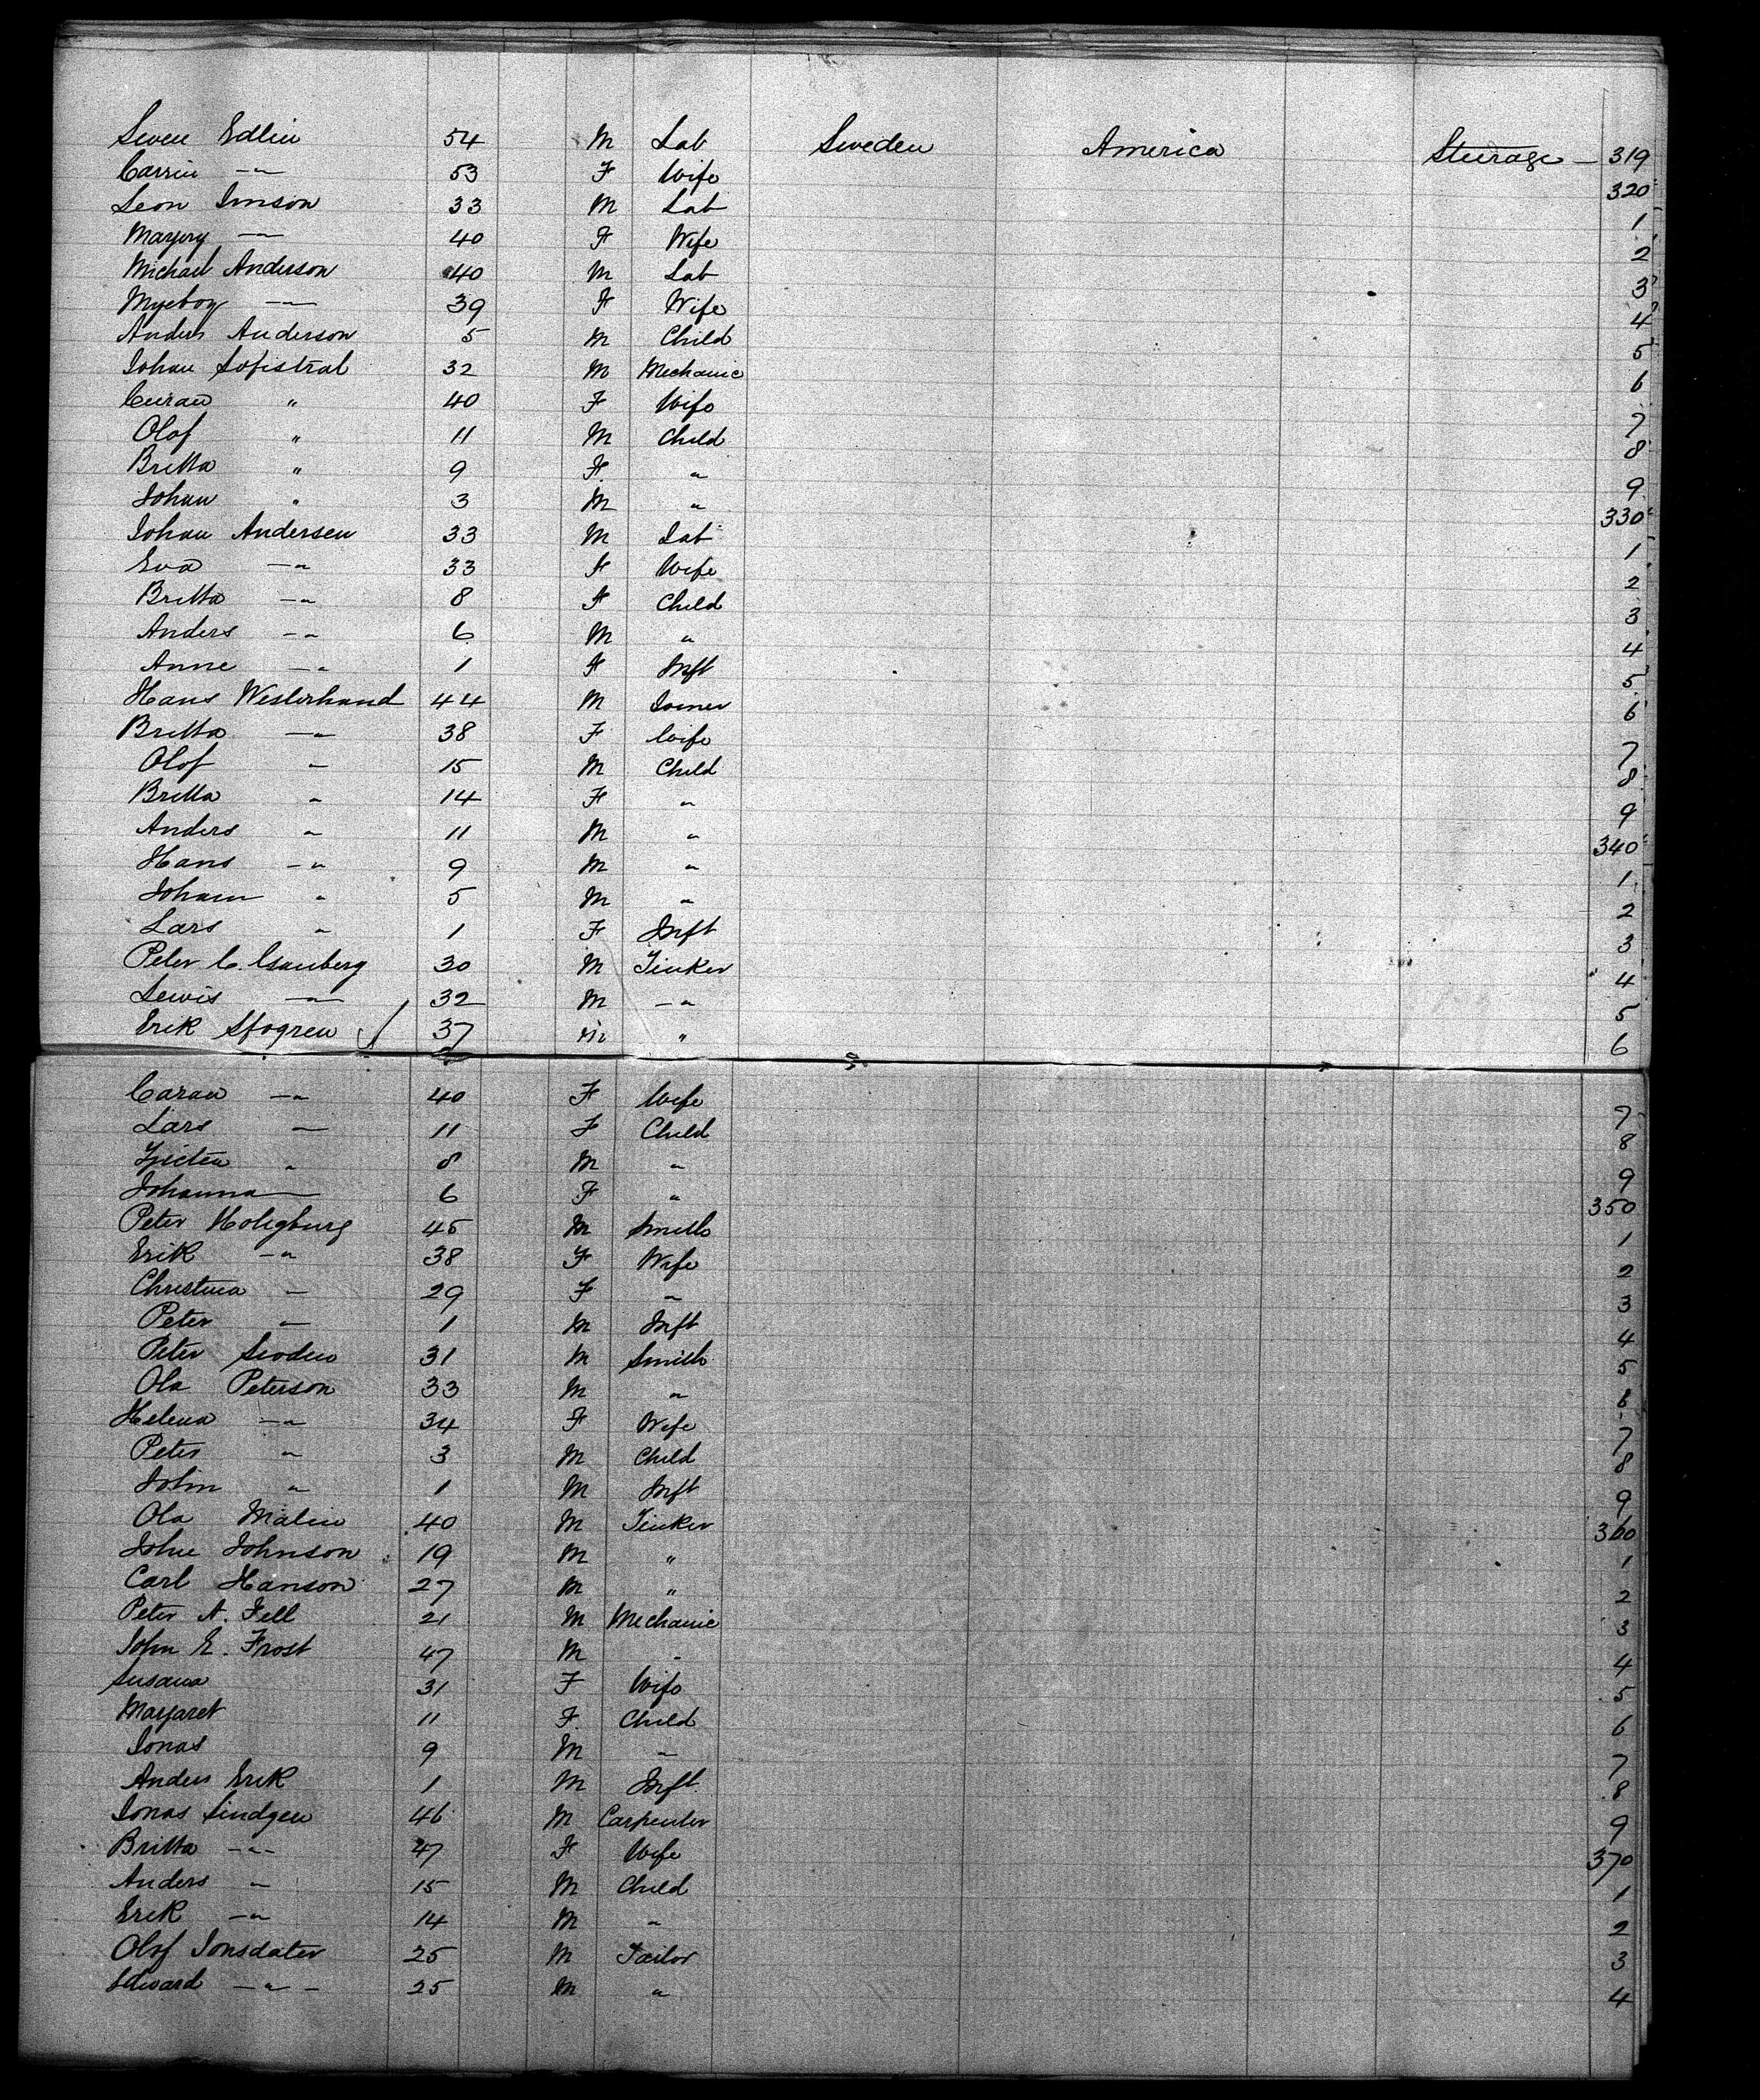 Swen Edlin 54 M Lab Sweden America Steerage — 319
Carrin —"— 53 F Wife 320
Leon Imson 33 M Lab 1
Marjory —"— 40 F Wife 2
Michael Anderson 40 M Lab 3
—"— 39 F Wife 4
Anders Anderson 5 M Child 5
Johan Sofistral 32 M Mechanic 6
" 40 F Wife 7
Olof " 11 M Child 8
Britta " 9 F " 9
Johan " 3 M " 330
Johan Andersen 33 M Lab 1
Eva —" 33 F Wife 2
Britta —" 8 F Child 3
Anders —" 6 M " 4
Anne —" 1 F Inft 5
Hans Westerhund 44 M Joiner 6
Britta —" 38 F Wife 7
Olof " 15 M Child 8
Britta " 14 F " 9
Anders " 11 M " 340
Hans —" 9 M " 1
Johann " 5 M " 2
Lars " 1 F Inft 3
Peter C. 30 M Tinker 4
Lewis —"— 32 M —" 5
Erik Sfogren 37 M " 6
Caran —" 40 F Wife 7
Lars — 11 F Child 8
" 8 M " 9
Johanna — 6 F " 350
Peter Holigburg 45 M Smith 1
Erik —" 38 F Wife 2
Christina — 29 F " 3
Peter — 1 M Inft 4
Peter 31 M Smith 5
Ola Peterson 33 M " 6
Helena —" 34 F Wife 7
Peter " 3 M Child 8
John " 1 M Inft 9
Ola Malin 40 M Tinker 360
John Johnson 19 M " 1
Carl Hanson 27 M " 2
Peter A. Fell 21 M Mechanic 3
John E. Frost 47 M " 4
Susana 31 F Wife 5
Margaret 11 F. Child 6
Jonas 9 M " 7
Anders Erik 1 M Inft 8
Jonas Lindgen 46 M Carpenter 9
Britta —"— 47 F Wife 370
Anders " 15 M Child 1
Erik —" 14 M " 2
Olof Jonsdater 25 M Tailor 3
Edward —"— 25 M " 4